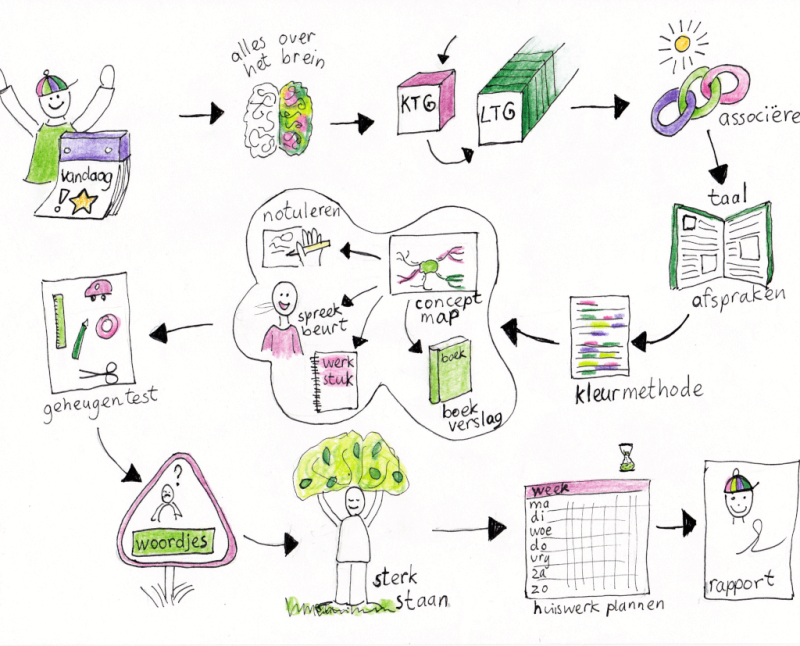 vandaag
!
alles over
het brein
KTG
LTG
associëre
taal
afspraken
kleurmethode
concept
map
notuleren
spreek
beurt
werk
stuk
boek
boek
verslag
geheugentest
?
woordjes
sterk
staan
week
ma
di
woe
do
vry
za
zo
huiswerk plannen
rapport